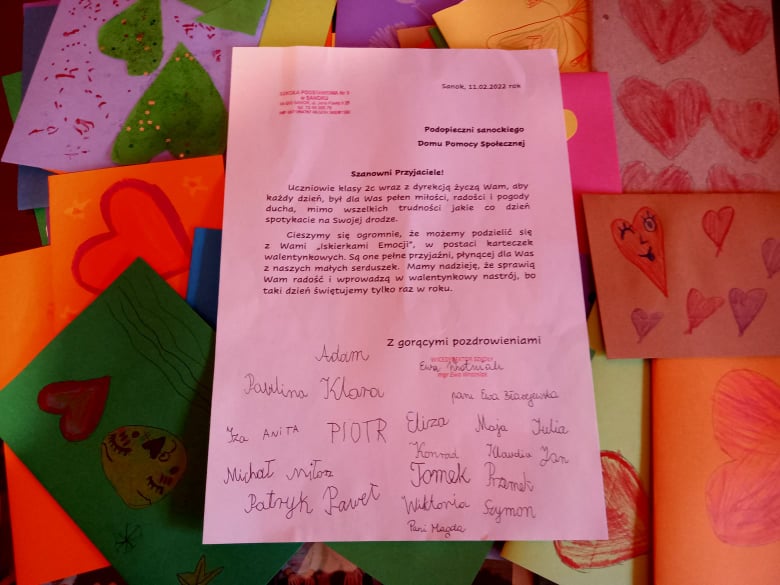 SZKOŁA PODSTAWOWA Nr 3
w SANOKU
Sanok, 11.02.2022 rok
Podopieczni sanockiego
Domu Pomocy Społecznej
Szanowni Przyjaciele!
Uczniowie klasy 2c wraz z dyrekcją życzą Wam, aby
każdy dzień, był dla Was pełen miłości, radości i pogody
ducha, mimo wszelkich trudności jakie co dzień
spotykacie na Swojej drodze.
Cieszymy się ogromnie, że możemy podzielić się
z Wami „Iskierkami Emocji”, w postaci karteczek
walentynkowych. Są one pełne przyjaźni, płynącej dla Was
z naszych małych serduszek. Mamy nadzieję, że sprawią
Wam radość i wprowadzą w walentynkowy nastrój, bo
taki dzień świętujemy tylko raz w roku.
Z gorącymi pozdrowieniami
WICEDYREKTOR SZKOŁY
mgr Ewa Woźniak
Adam
Ewa Woźniak
Paulina Klara
pani Ewa
Iza ANITA PIOTR Eliza Maja Julia
Konrad Klaudia Jan
Michał Miłosz Tomek Przemek
Patryk Paweł Wiktoria Szymon
Pani Magda